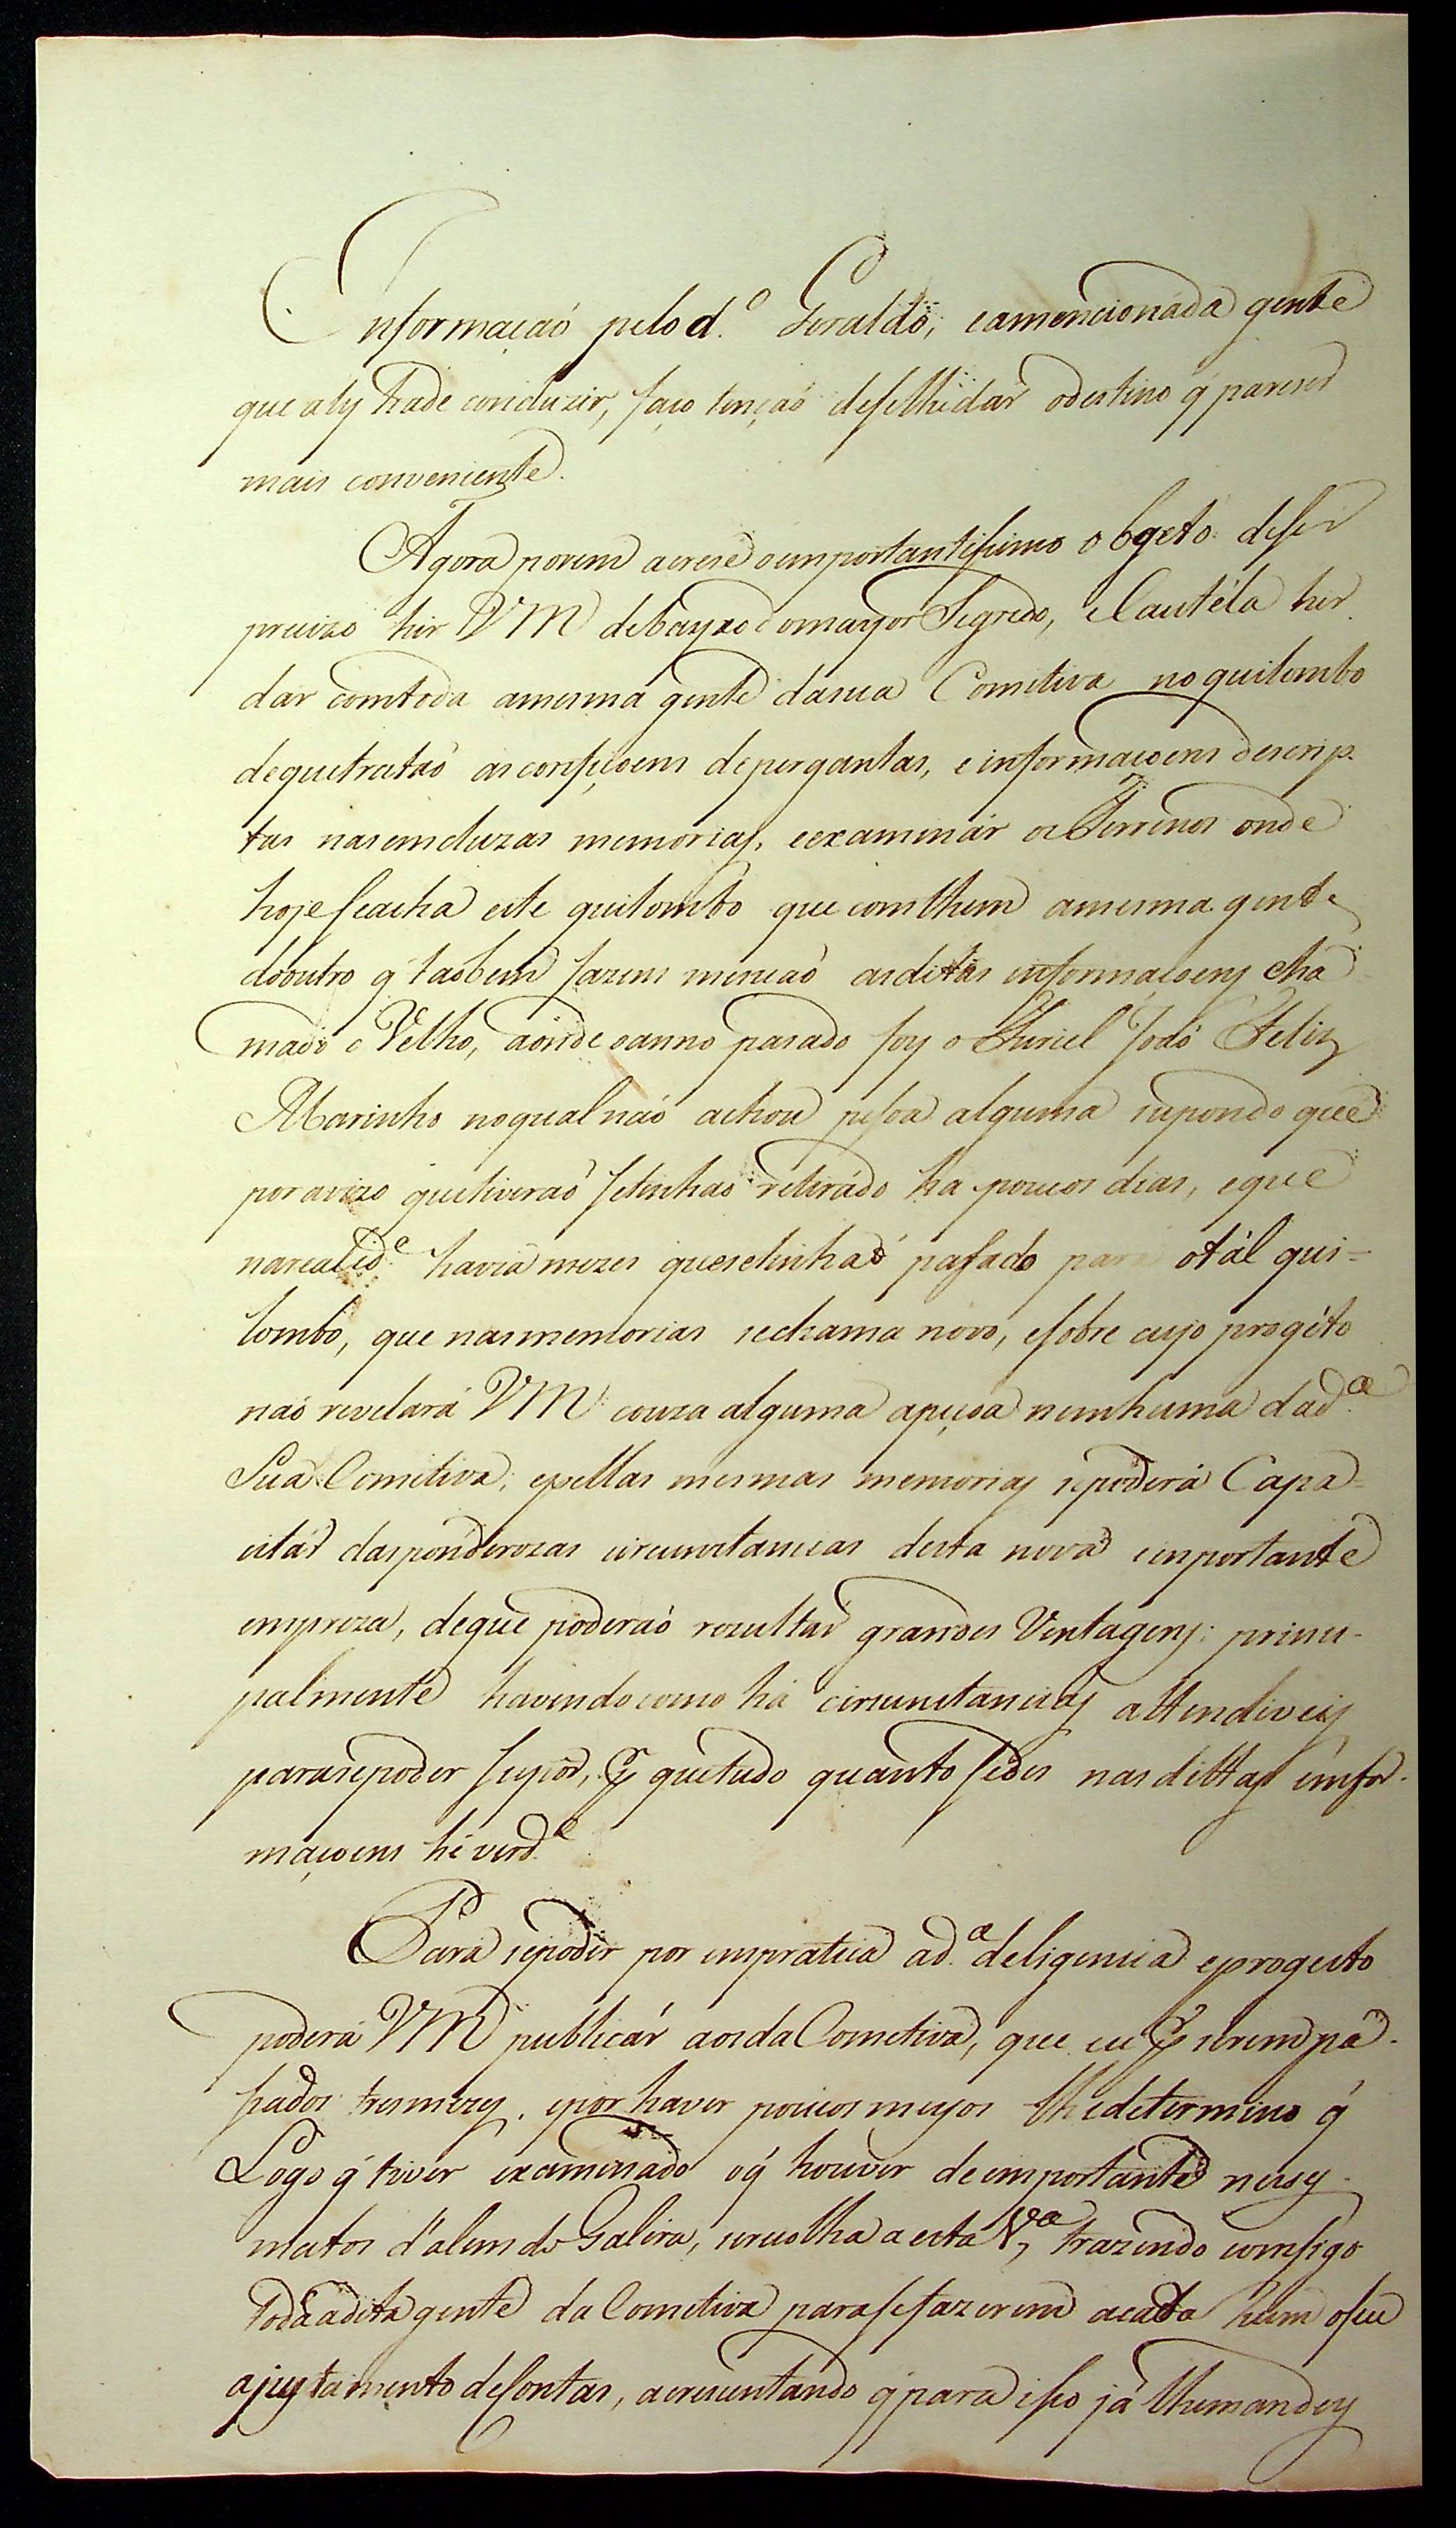 Informaçaó pelo d.º Geraldo, eamencionada gente
que aly hade conduzir, faço tençaó deselhedár odestino q̃ parecer
mais conveniente.
Agora porem acrese oemportantissimo obgeto deser
precizo hir VM debayxo domayor Segredo, eCautéla her
dar comtoda amesma gente dasua Comitiva no quilombo
dequetrataó as confiçoens deperguntas, einformaçoens descrip-
tas nasemcluzas memorias, eexaminár os Terrenos onde
hoje seacha este quilombo que comthem amesma gente
dooutro q̃ taobem fazem mençaó asditas informaçoens cha
mado o Velho, aonde oanno pasado foy o Furiel Joaó Felix
Marinho noqual naó achou pessoa alguma supondo que
por avizo quetiveraó setinhaó retirádo ha poucos dias, eque
narealid.e havia mezes quesetinhaó passado para otál qui=
lombo, que nasmemorias sechama novo, esobre cujo progéto
naó revelará VM couza alguma apeçoa nemhuma dad.ª
Sua Comitiva, epellas mesmas memorias sepoderá Capa-
citár dasponderozas circunstancias desta nova emportante
empreza, deque poderaó rezultár grandes Ventagens: princi-
palmente havendo como há circunstancias attendiveis
parasepoder supor, q̃ quetudo quanto sedis nas dittas imfor-
maçoens hé verd.e
Para sepoder por empratica ad.ª deligencia eprogecto
poderá VM publicár aosda Cometiva, que eu p̃ serem pa-
sados tresmezes, epor haver poucos meyos lhedetermino q̃
Logo q̃ tiver examinado oq̃ houver deemportante neses
matos d'alem do Galera, serecolha a esta V.ª trazendo comsigo
Toda adita gente da Cometiva parasefazerem acada hum oseu
ajustamento deContas, acrescentando q̃ para isso já lhemandey